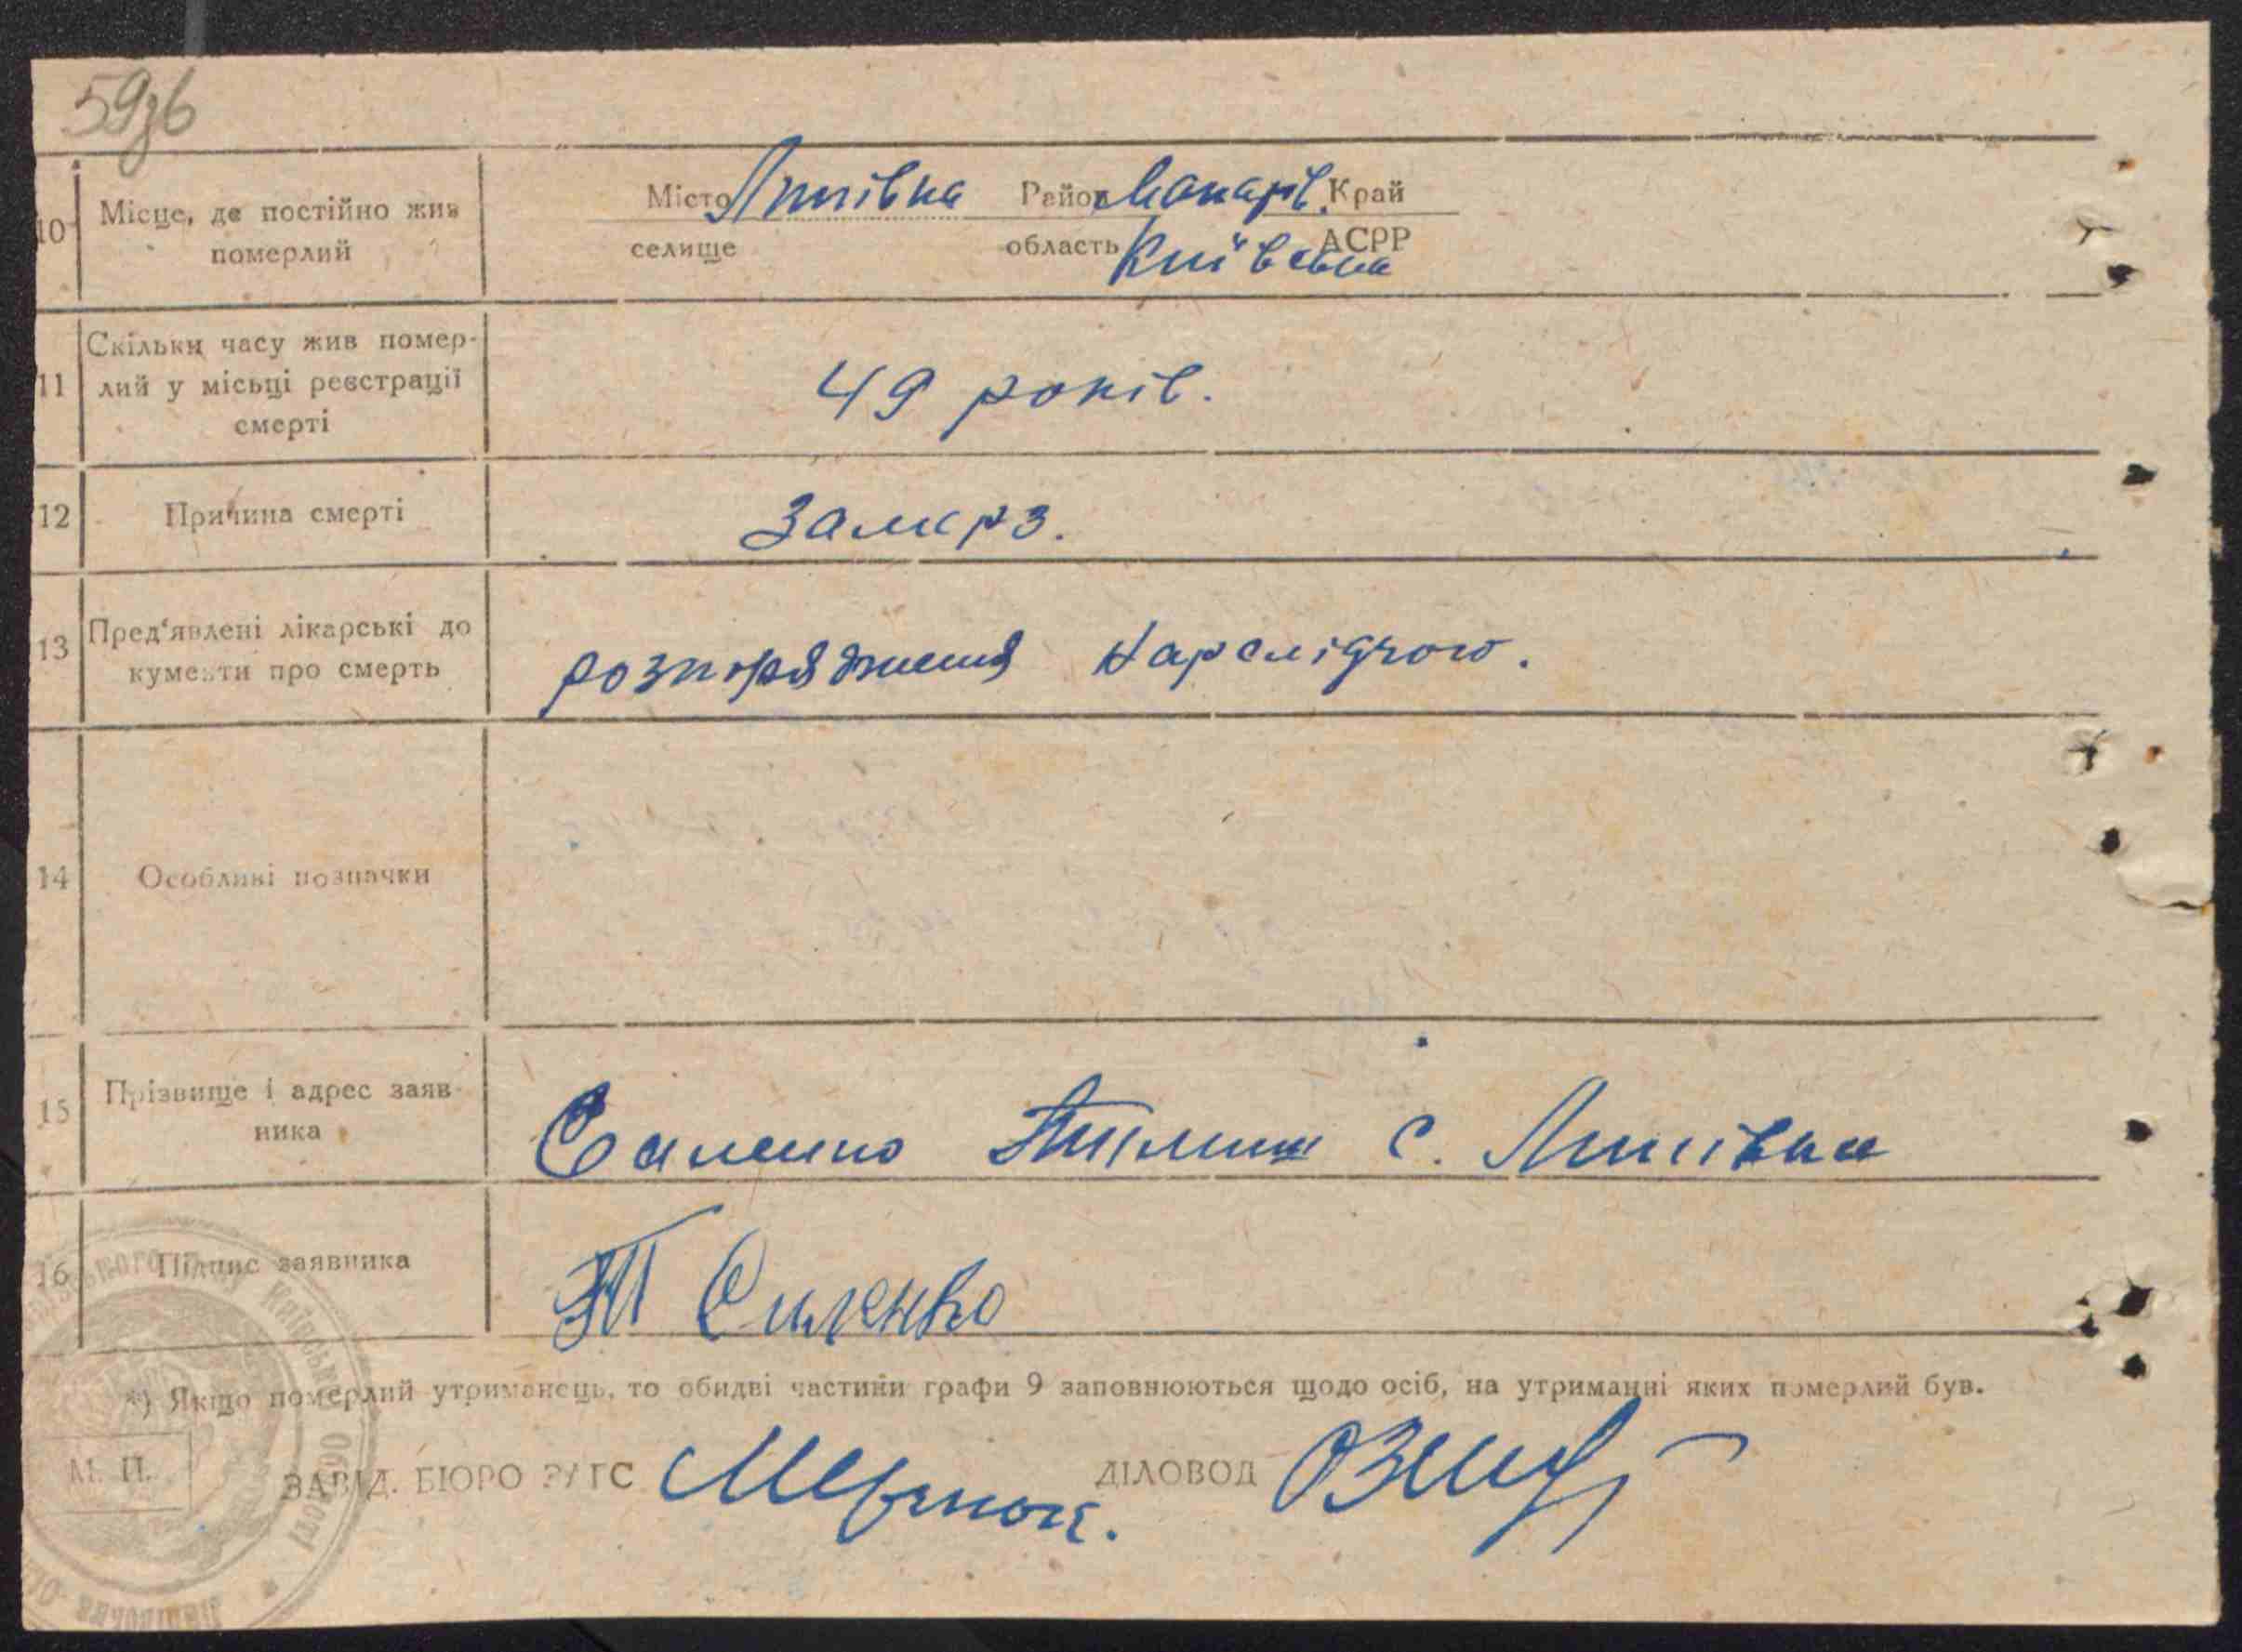 59зв
10 Місце, де постійно жив померлий
Місто Липівка Район Макарів. Край
селище область Київська АСРР
11 Скільки часу жив помер-
лий у місьці реєстрації
смерті
49 років.
12 Причина смерті
Замерз.
13 Пред'явлені лікарські до
кументи про смерть
розпорядження Нарслідчого.
14 Особливі позначки
15 Прізвище і адрес заяв-
ника
с. Липівка
16 Підпис заявника
*) Якщо померлий утриманець, то обидві частини графи 9 заповнюються щодо осіб, на утриманні яких померлий був.
М. П.
ЗАВІД. БЮРО ЗАГС
ДІЛОВОД